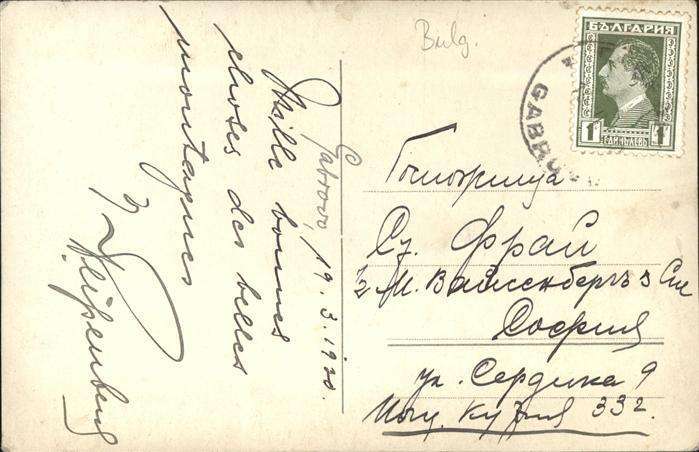 Bulg.
БЪЛГАРИЯ
1 ЕДИНЪ ЛЕВЪ 1
GABROVO
Gabrovo, 19.3.1930.
Mille bonnes
choses des belles
montagnes
Госпожица
Сз. Фрай
М. Вайсенбергъ &
София
ул. Сердика 9
Пощ. кутия 332.